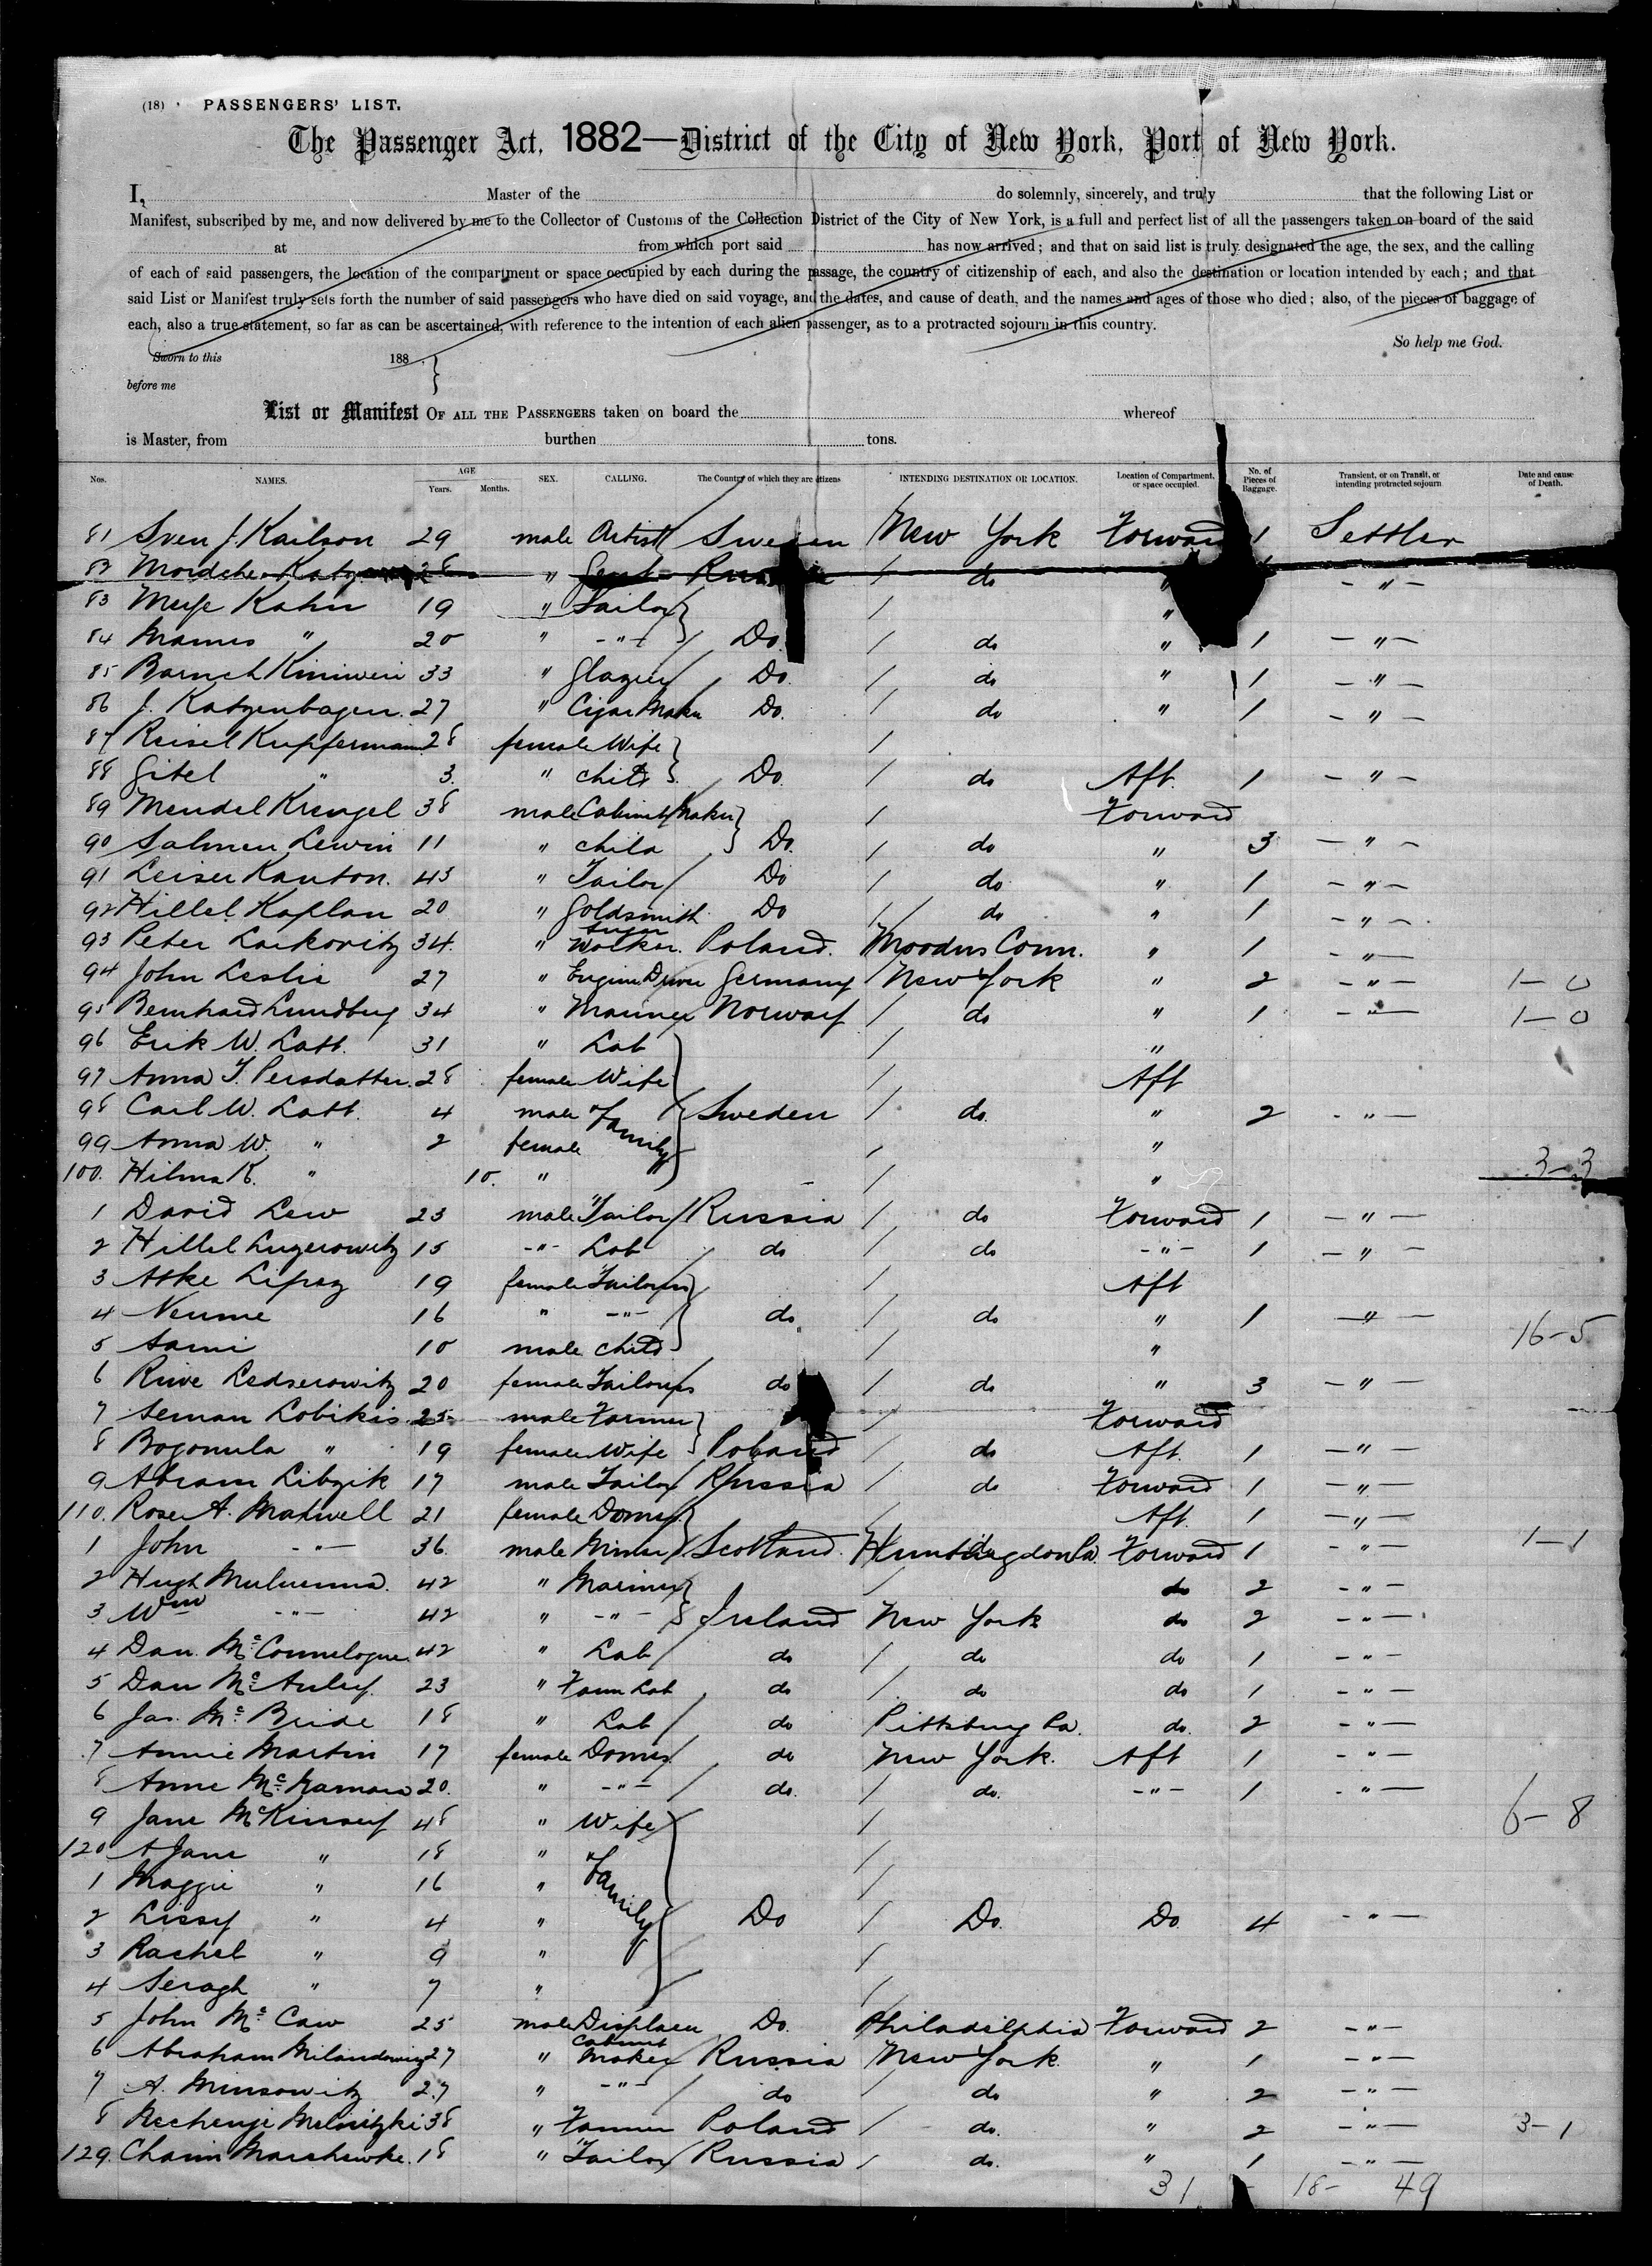 (18) PASSENGERS' LIST.
The Passenger Act, 1882—District of the City of New York, Port of New York.
I, Master of the do solemnly, sincerely, and truly that the following List or
Manifest, subscribed by me, and now delivered by me to the Collector of Customs of the Collection District of the City of New York, is a full and perfect list of all the passengers taken on board of the said
at from which port said has now arrived; and that on said list is truly designated the age, the sex, and the calling
of each of said passengers, the location of the compartment or space occupied by each during the passage, the country of citizenship of each, and also the destination or location intended by each; and that
said List or Manifest truly sets forth the number of said passengers who have died on said voyage, and the dates, and cause of death, and the names and ages of those who died; also, of the pieces of baggage of
each, also a true statement, so far as can be ascertained, with reference to the intention of each alien passenger, as to a protracted sojourn in this country.
So help me God.
Sworn to this 188 }
before me
List or Manifest OF ALL THE PASSENGERS taken on board the whereof
is Master, from burthen tons.
Nos. NAMES. AGE Years. Months. SEX. CALLING. The Country of which they are citizens INTENDING DESTINATION OR LOCATION. Location of Compartment, or space occupied. No. of Pieces of Baggage. Transient, or on Transit, or intending protracted sojourn Date and cause of Death.
81 Sven J. Karlson 29 male Artist Sweden New York Forward 1 Settler
82 28 " do " - " -
83 Kahn 19 " Tailor } / "
84 " 20 " - " - Do / do " 1 - " -
85 33 " Glazier Do. / do " 1 - " -
86 J. Katzenbagen. 27 " Cigar Maker Do. / do " 1 - " -
87 Reisel Kupfermann 28 female Wife } /
88 Gitel " 3. " child Do / do Aft. 1 - " -
89 Mendel Krengel 38 male Cabinet Maker } / Forward
90 Salmen Lewin 11 " child Do. / do " 3 - " -
91 Leiser Kanton. 43 " Tailor Do / do " 1 - " -
92 Hillel Kaplan 20 " Goldsmith Do / do " 1 - " -
93 Peter Laskovitz 34. " Worker. Poland. Moodus Conn. " 1 - " -
94 John Leslie 27 " Engine Driver Germany New York " 2 - " - 1-0
95 Bernhard Lundberg 34 " Mariner Norway / do " 1 - " - 1-0
96 Erik W. Latt. 31 " Lab } / "
97 Anna T. Persdatter. 28 female Wife / Aft
98 Carl W. Latt. 4 male Family Sweden / do. " 2 - " -
99 Anna W. " 2 female / "
100. Hilma K. " 10. " / " 3-3
1 David Lew 23 male Tailor Russia / do Forward 1 - " -
2 Hillel Luzerowitz 15 - " - Lab do / do - " - 1 - " -
3 Aske Lipsz 19 female Tailoress } / Aft
4 Neume 16 " - " - do / do " 1 - " -
5 Sami 10 male child / " 16-5
6 Riwe Ledserowitz 20 female Tailoress do / do " 3 - " -
7 Seman Lobikis 25 male Farmer } / Forward
8 Bogomula " 19 female Wife Poland / do Aft. 1 - " -
9 Abram Libzik 17 male Tailor Russia / do Forward 1 - " -
110. Rose A. Maxwell 21 female Domes } / Aft. 1 - " -
1 John - " - 36. male Miner Scotland Huntingdon Pa. Forward 1 - " - 1-1
2 Hugh 42 " Mariner } / do 2 - " -
3 Wm - " - 42 " - " - Ireland New York do 2 - " -
4 Dan. McConnelogue 42 " Lab do / do do 1 - " -
5 Dan McAuley. 23 " Farm Lab do / do do 1 - " -
6 Jas. McBride 18 " Lab do Pittsburg Pa. do. 2 - " -
7 Annie Martin 17 female Domes do New York. Aft 1 - " -
8 Anne McNamara 20. " - " - do. / do. - " - 1 - " -
9 Jane McKinsey 48 " Wife } / 6-8
120 A Jane " 18 " Family /
1 Maggie " 16 " /
2 Lissy " 4 " Do / Do. Do 4 - " -
3 Rachel " 9 " /
4 Seragh " 7 " /
5 John McCaw 25 male Do. Philadelphia Forward 2 - " -
6 Abraham 27 " Cabinet Maker Russia New York. " 1 - " -
7 A. Minsowitz 27 " - " - do / do " 2 - " -
8 Melnitzki 38 " Farmer Poland / do. " 2 - " - 3-1
129. Chaim 18 " Tailor Russia / do. " 1 - " -
31 - 18 - 49